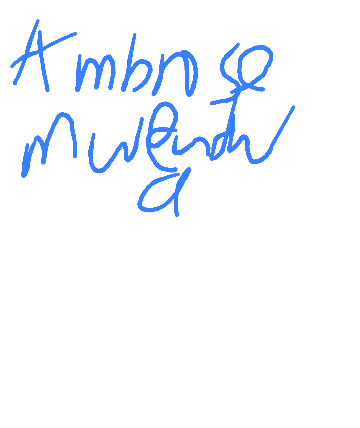 Ambrose
Mwendw
a